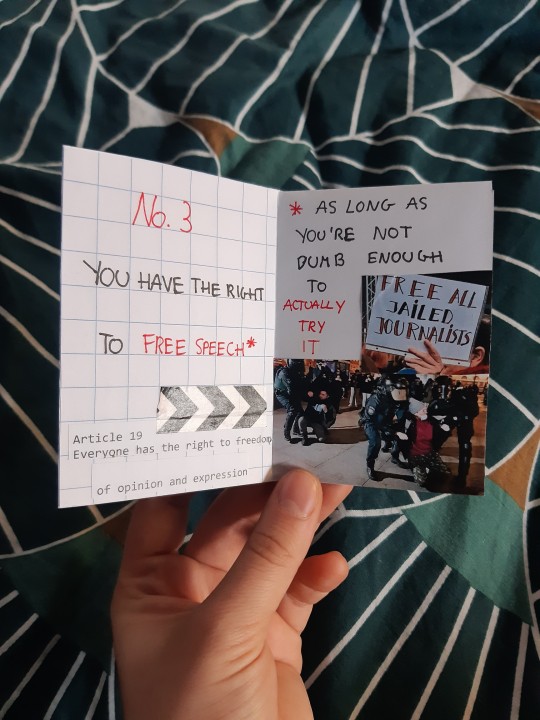 No. 3
YOU HAVE THE RIGHT
TO FREE SPEECH*
Article 19
Everyone has the right to freedom
of opinion and expression
* AS LONG AS
YOU'RE NOT
DUMB ENOUGH
TO
ACTUALLY
TRY
IT
FREE ALL
JAILED
JOURNALISTS